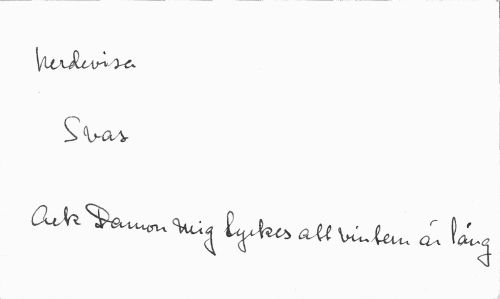 herdevisa
Svar
Ack Damon mig tyckes att vintern är lång